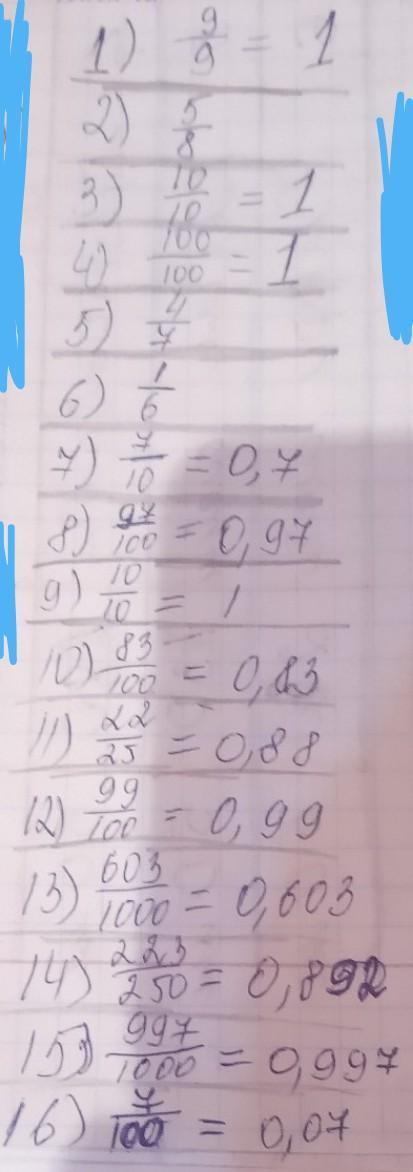 1) 9/9 = 1
2) 5/8
3) 10/10 = 1
4) 100/100 = 1
5) 4/7
6) 1/6
7) 7/10 = 0,7
8) 97/100 = 0,97
9) 10/10 = 1
10) 83/100 = 0,83
11) 22/25 = 0,88
12) 99/100 = 0,99
13) 603/1000 = 0,603
14) 223/250 = 0,892
15) 997/1000 = 0,997
16) 7/100 = 0,07